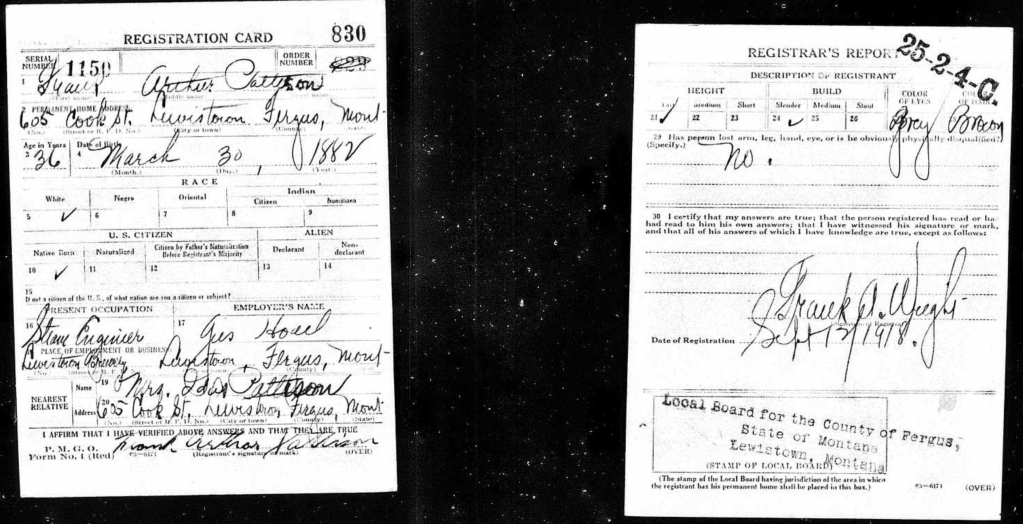 REGISTRATION CARD 830
SERIAL NUMBER 1150 ORDER NUMBER
1 Frank Arthur Pattyson
2 PERMANENT HOME ADDRESS
605 Cook St. Lewistown Fergus, Mont-
(No.) (Street or R. F. D. No.) (City or town) (County) (State)
Age in Years Date of Birth
3 36 4 March 30, 1882
(Month.) (Day.) (Year.)
RACE
White Negro Oriental Indian
Citizen Noncitizen
5 ✓ 6 7 8 9
U. S. CITIZEN ALIEN
Native Born Naturalized Citizen by Father's Naturalization Before Registrant's Majority Declarant Non-declarant
10 ✓ 11 12 13 14
15
If not a citizen of the U. S., of what nation are you a citizen or subject?
PRESENT OCCUPATION EMPLOYER'S NAME
16 Steam Engineer 17 Gus
18 PLACE OF EMPLOYMENT OR BUSINESS
Lewistown Brewery Lewistown, Fergus, Mont-
(No.) (County)
NEAREST RELATIVE
Name 19 Mrs. Ida Pattyson
Address 20 605 Cook St. Lewistown Fergus, Mont
(No.) (Street or R. F. D. No.) (City or town) (County) (State)
I AFFIRM THAT I HAVE VERIFIED ABOVE ANSWERS AND THAT THEY ARE TRUE
P. M. G. O.
Form No. 1 (Red) 03—6171 Frank Arthur
(Registrant's signature or mark) (OVER)
REGISTRAR'S REPORT 25-2-4-C.
DESCRIPTION OF REGISTRANT
HEIGHT BUILD COLOR OF EYES COLOR OF HAIR
Tall Medium Short Slender Medium Stout
21 ✓ 22 23 24 ✓ 25 26 Grey Brown
29 Has person lost arm, leg, hand, eye, or is he obviously physically disqualified?
(Specify.) No.
30 I certify that my answers are true; that the person registered has read or has
had read to him his own answers; that I have witnessed his signature or mark,
and that all of his answers of which I have knowledge are true, except as follows:
Frank A. Wright
Date of Registration Sept 12/1918.
Local Board for the County of Fergus,
State of Montana
Lewistown, Montana
(STAMP OF LOCAL BOARD)
(The stamp of the Local Board having jurisdiction of the area in which
the registrant has his permanent home shall be placed in this box.)
03—6171 (OVER)